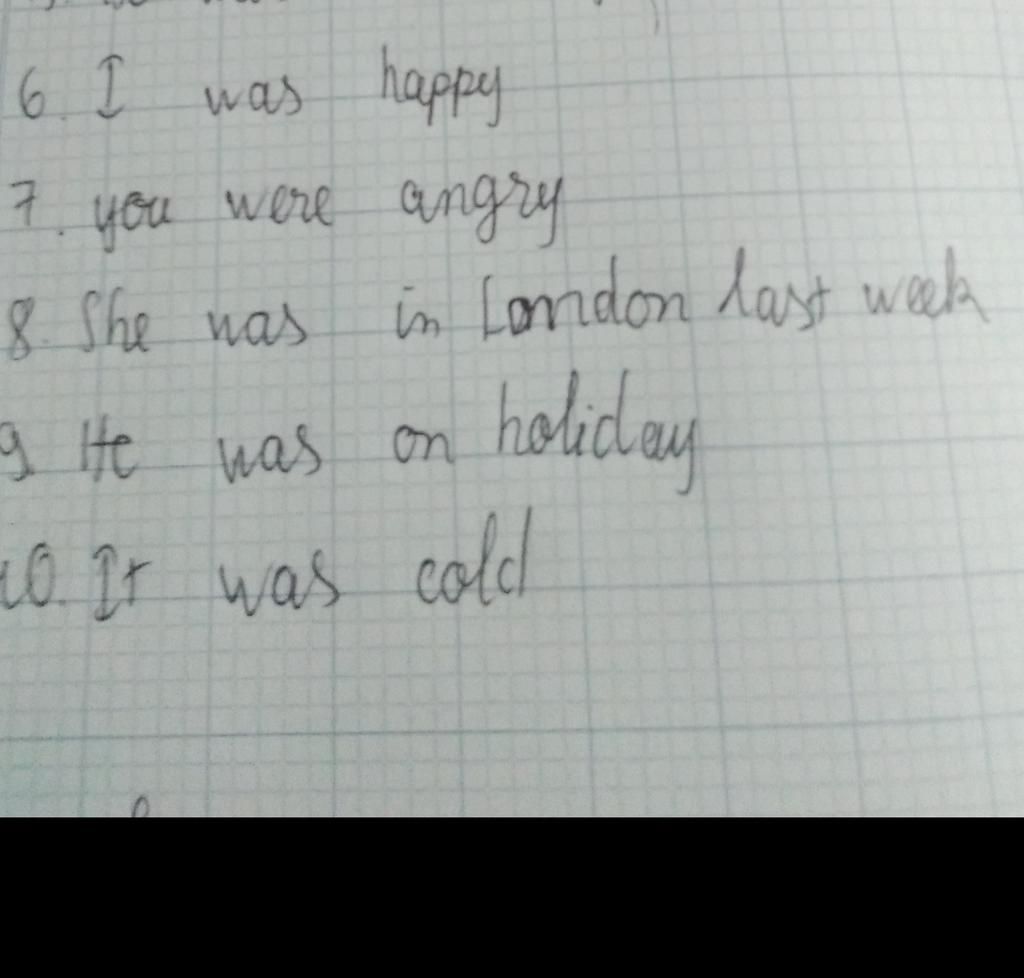 6. I was happy
7. you were angry
8. She was in London last week
9 He was on holiday
10. It was cold